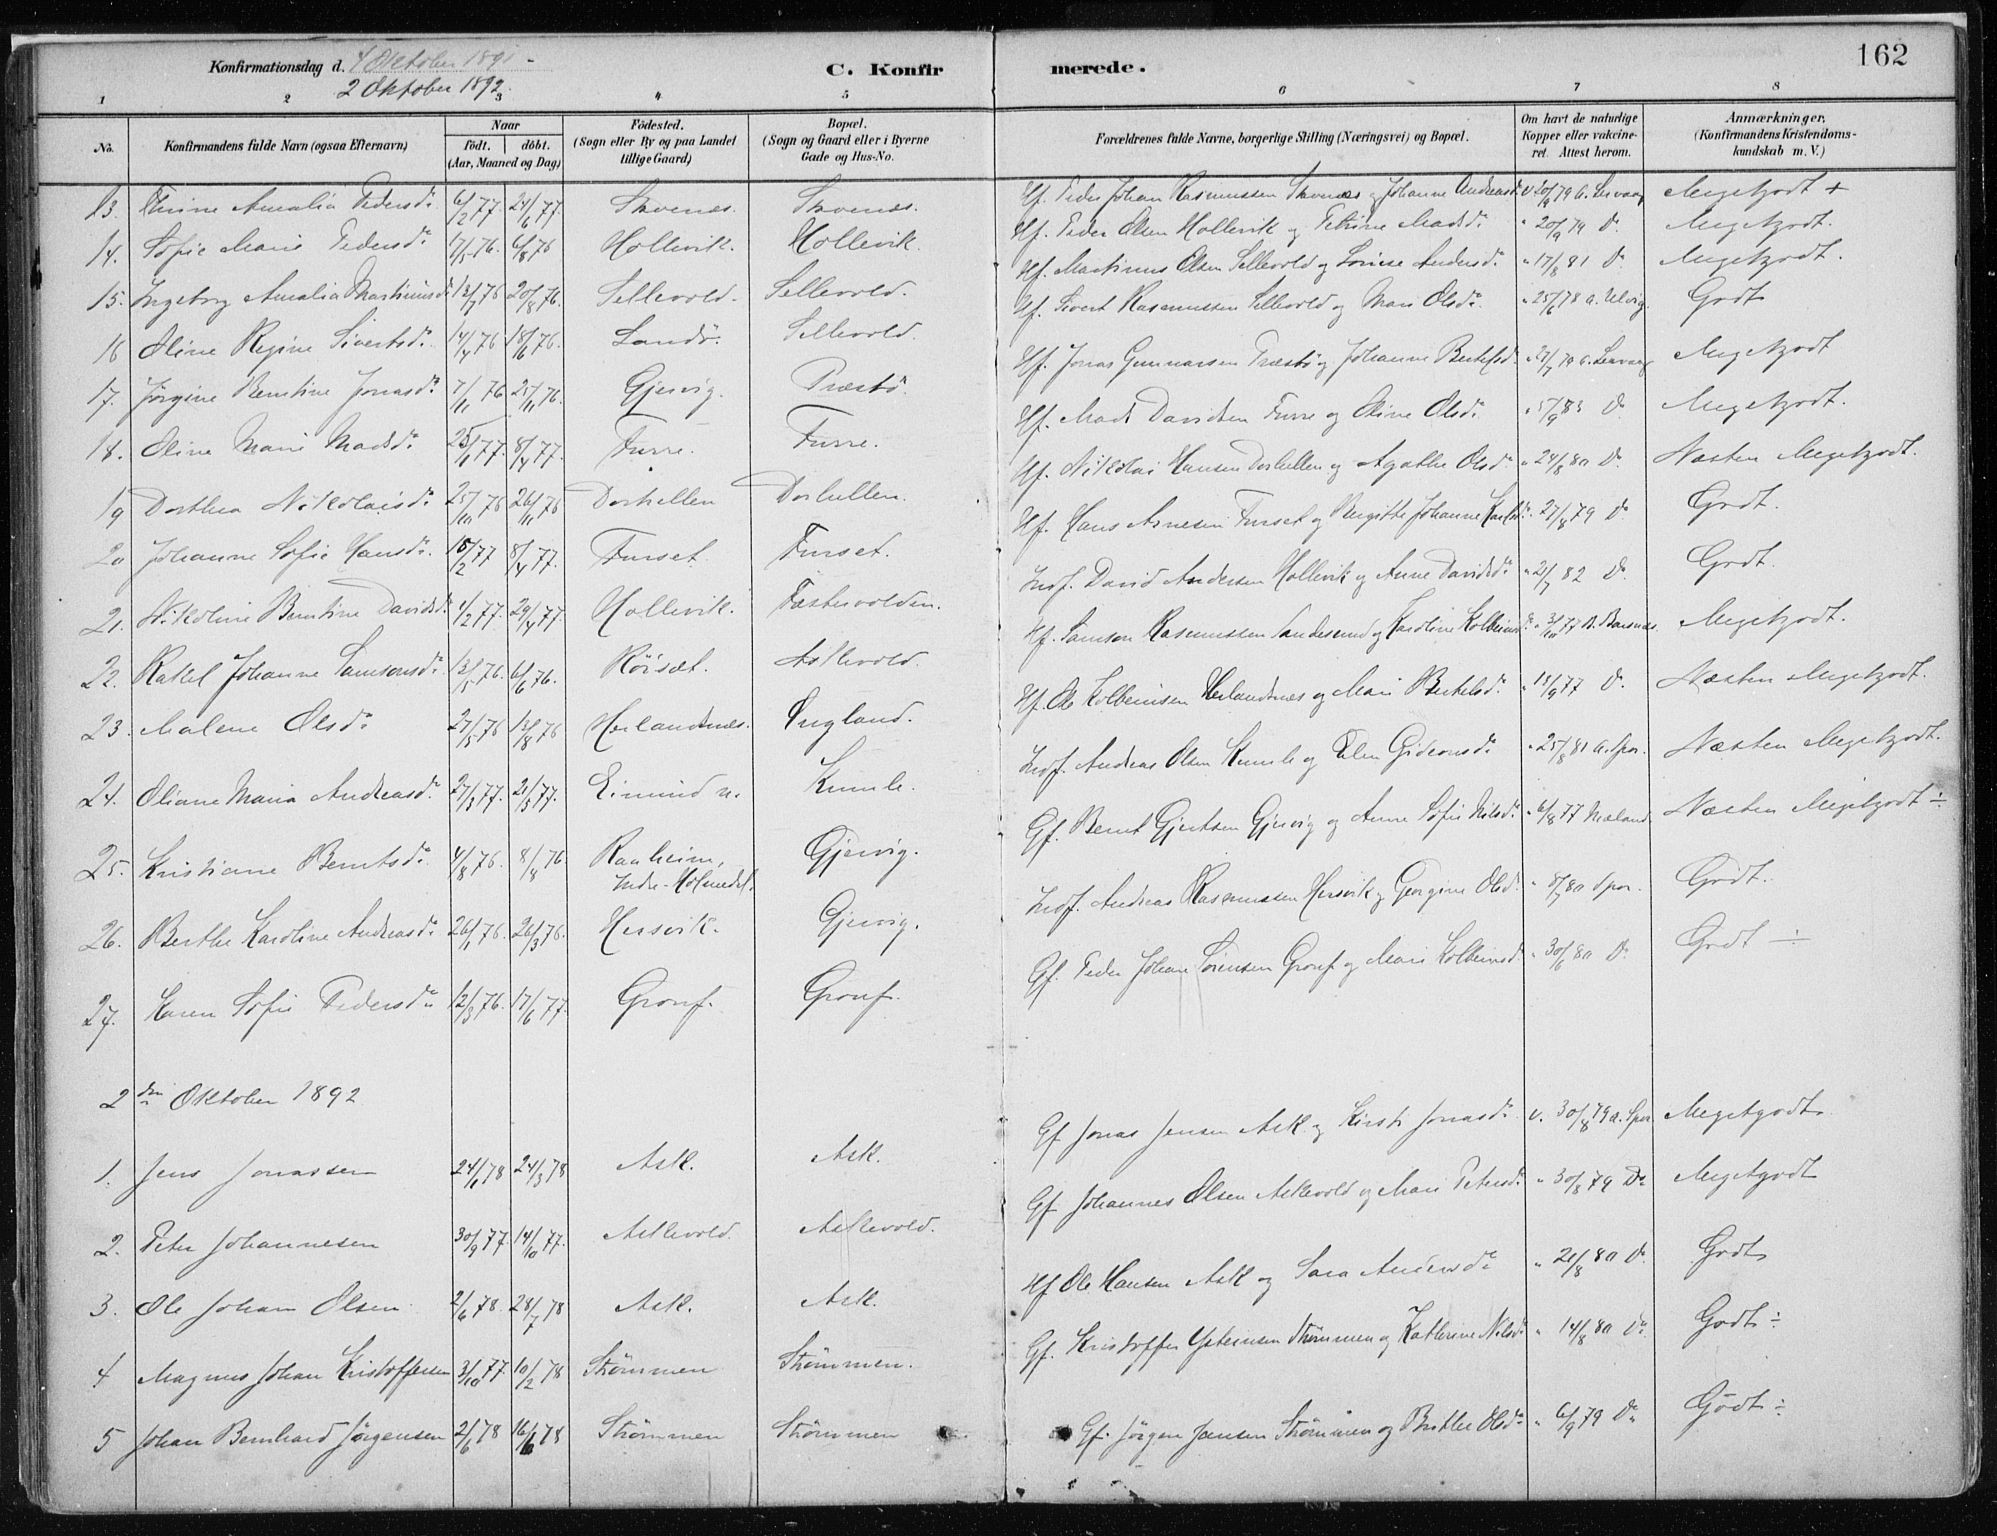 162
Konfirmationsdag d. 4 Oktober 1891
2 Oktober 1892.
C. Konfirmerede.
1 2 3 4 5 6 7 8
No. Konfirmandens fulde Navn (ogsaa Efternavn) Naar født. døbt. (Aar, Maaned og Dag) Fødested. (Sogn eller By og paa Landet tillige Gaard) Bopæl. (Sogn og Gaard eller i Byerne Gade og Hus-No. Forældrenes fulde Navne, borgerlige Stilling (Næringsvei) og Bopæl. Om havt de naturlige Kopper eller vakcineret. Attest herom. Anmærkninger, (Konfirmandens Kristendomskundskab m. V.)
13. Amalia Pedersdr. 6/2 77. 24/6 77. Skvenæs. Skvenæs. Hf. Peder Johan Rasmussen Skvenæs og Johanne Andreasdr. Megetgodt +
14. Sofie Marie Pedersdr. 17/5 76. 6/8 76 Hollevik. Hollevik. Hf. Peder Olsen Hollevik og Petrine Madsdr. " 20/9 79 Do. Megetgodt.
15. Ingeborg Amalia Martinusdr. 13/7 76 20/8 76. Sellevold. Sellevold. Hf. Martinus Olsen Sellevold og Lovise Andersdr. " 17/8 81 Do. Megetgodt.
16 Oline Regine Sivertsdr. 14/4 76 18/6 76. Landø. Sellevold. Hf. Sivert Rasmussen Sellevold og Mari Olsdr. " 25/6 78 a. Ulvig. Godt
17. Jørgine Berntine Jonasdr. 7/11 76 25/11 76. Gjervig. Præstø. Hf. Jonas Gunnarsen Præstø og Johanne Bertelsdr. Megetgodt
18. Oline Marie Madsdr. 25/1 77. 8/4 77. Furre. Furre. Hf. Mads Davidsen Furre og Oline Olsdr. " 5/9 85 Do. Megetgodt.
19 Dorthea Nikolaisdr. 25/10 76 26/11 76 Dorhellen Dorhellen. Hf. Nikolai Hansen Dorhellen og Agathe Olsdr. " 24/8 80 Do. Næsten Megetgodt.
20 Johanne Sofie Hansdr. 15/2 77 8/4 77. Furset. Furset. Hf. Hans Arnesen Furset og Birgitte Johanne Karlsdr. " 27/8 79 Do. Godt.
21. Nikoline Berntine Davidsdr. 1/2 77. 29/4 77. Hollevik. Fæstevolden. Indf. David Andersen Hollevik og Anne Davidsdr. " 21/7 82 Do. Godt.
22. Rakel Johanne Samsonsdr. 13/5 76. 6/6 76. Röisæt. Askevold. Hf. Samson Rasmussen Sandesund og Karoline Kolbeinsdr. Megetgodt.
23. Malene Olsdr. 27/5 76 13/8 76 Herlandsnæs. England. Hf. Ole Kolbeinsen Herlandsnæs og Mari Bertelsdr. " 18/9 77 Do. Næsten Megetgodt.
24. Oliane Maria Andreasdr. 27/3 77. 21/5 77. Eimind n. Kumle. Indf. Andreas Olsen Kumle og Elen Gideonsdr. " 25/8 81 a. Spor. Næsten Megetgodt.
25. Kristiane Berntsdr. 4/8 76. 8/8 76 Raaheim, Indre-Holmedal. Gjervig. Gf. Bernt Gjertsen Gjervig og Anne Sofie Nilsdr. " 6/8 77 Mæland Næsten Megetgodt ÷
26. Berthe Karoline Andreasdr. 26/1 76. 26/3 76. Hersvik. Gjervig. Indf. Andreas Rasmussen Hersvik og Georgine Olsdr. " 8/7 80 Spor. Godt.
27. Karen Sofie Pedersdr. 12/3 76. 17/6 77. Grouf. Grouf. Gf. Peder Johan Sørensen Grouf og Mari Kolbeinsdr. " 30/6 80 Do. Godt ÷
2den Oktober 1892
1. Jens Jonassen 24/1 78 24/3 78 Ask. Ask. Gf Jonas Jensen Ask og Kirsti Jonasdr. v. 30/8 79 a. Spor Megetgodt
2. Peter Johannesen 30/9 77. 14/10 77. Askevold. Askevold. Gf Johannes Olsen Askevold og Mari Petersdr. " 30/8 79 Do Megetgodt
3. Ole Johan Olsen. 2/6 78. 28/7 78 Ask. Ask. Hf Ole Hansen Ask og Sara Andersdr. " 21/8 80 Do. Godt
4 Magnus Johan Kristoffersen 3/10 77. 10/2 78 Strømmen Strømmen. Gf. Kristoffer Ysteinsen Strømmen og Katherine Nilsdr. " 14/8 80 Do. Godt ÷
5 Johan Bernhard Jørgensen 2/6 78 16/6 78 Strømmen Strømmen Gf. Jørgen Jansen Strømmen og Berthe Olsdr. " 6/9 79 Do. Godt ÷